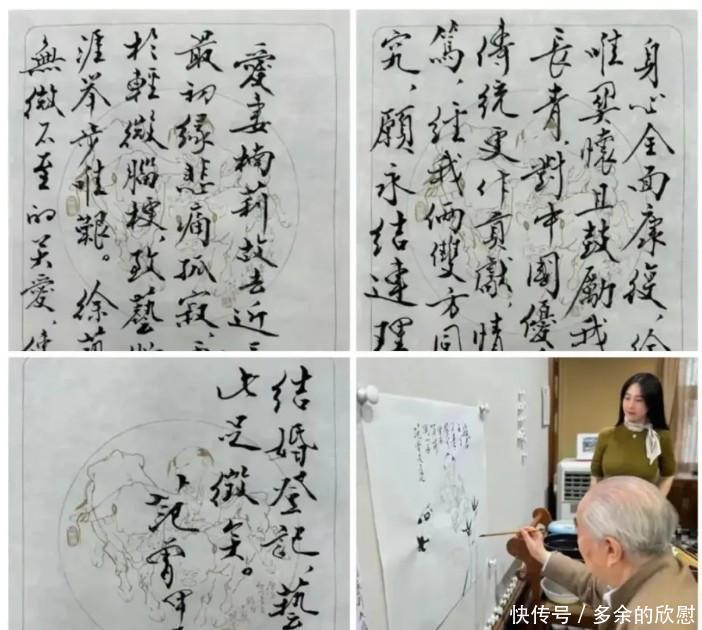 愛妻楠莉故去近
最初緣悲痛孤寂,
於輕微腦梗,致藝
涯举步唯艱。徐萌
無微不至的关愛,使
身心全面康復,给
唯异懷且鼓勵我
長青,對中國優
傳統更作貢獻,情
篤,经我俩雙方同
究,願永结連理
结婚登记,藝
此足徵矣。
范曾甲
快传号 / 多余的欣慰